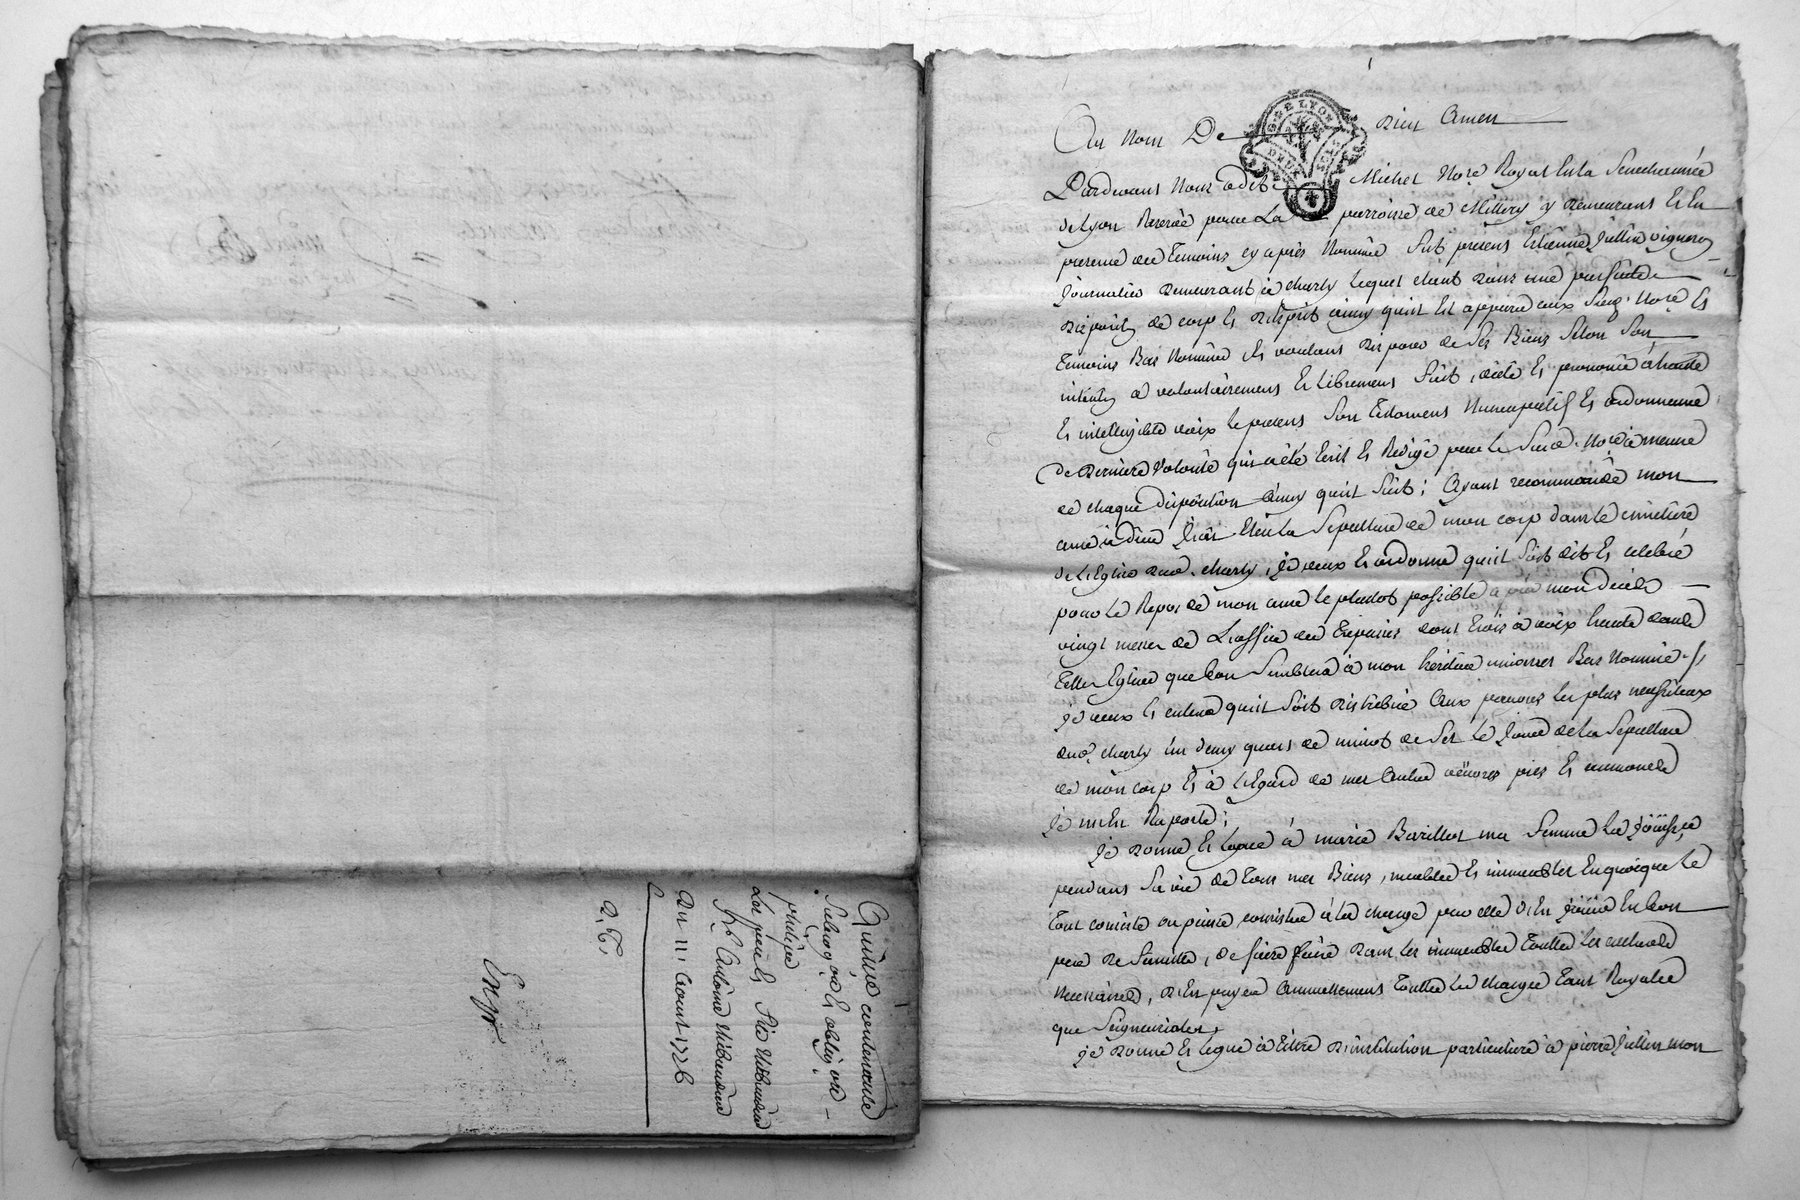 Quittance contenante
Subrog.on et oblig.on
privilegiée
du 11 aoust 1776
Exp.
G.TE DE LYON
DEUX SOLS
Au Nom De Dieu Amen
Pardevant Nous Michel No.re Royal En la Senechaussée
de Lyon Reservé pour La parroisse de Millery y demeurant Et En
presence des Temoins cy après Nommés fut present Etienne Jullin vigneron
Journalier demeurant à charly lequel étant dans une parfaite
disposi.on de corp Et d'Esprit ainsy qu'il Est apparu aux susd. No.re Et
Temoins Bas Nommés Et voulant disposer de ses Biens selon son
intent.on a volontairement Et Librement fait, dicté Et prononcé à haute
Et intelligible voix le present son Testament Nuncupatif Et ordonnance
De derniere volonté qui a été Ecrit Et Redigé par le susd. No.re à mesure
de chaque disposition ainsy qu'il suit; Ayant recommandé mon
ame à dieu Elû la sepulture de mon corp dans le cimetiere
de L'Eglise dud. charly, je veux Et ordonne qu'il soit dit Et celebré
pour le Repos de mon ame le plustot possible après mon decès
vingt messes de L'office des Trepassés dont trois à voix haute dans
telle Eglise que bon semblera à mon heritier universel Bas Nommé;
je veux Et entend qu'il soit distribué Aux pauvres les plus necessiteux
dud. charly un demy quart de minot de sel le jour de la sepulture
de mon corp Et à l'Egard de mes autres oeuvres pies Et aumones
je m'En Raporte;
je donne Et legue à marie Barillot ma femme la jouissance
pendant sa vie de tous mes Biens, meubles Et immeubles En quoique le
tout consiste ou puisse consister à la charge par elle d'En jouir En bon
pere de famille, de faire faire dans les immeubles toutes les cultures
Necessaires, d'En payer Annuellement toutes les charges tant Royales
que seigneuriales,
je donne Et legue à titre d'institution particuliere à pierre Jullin mon